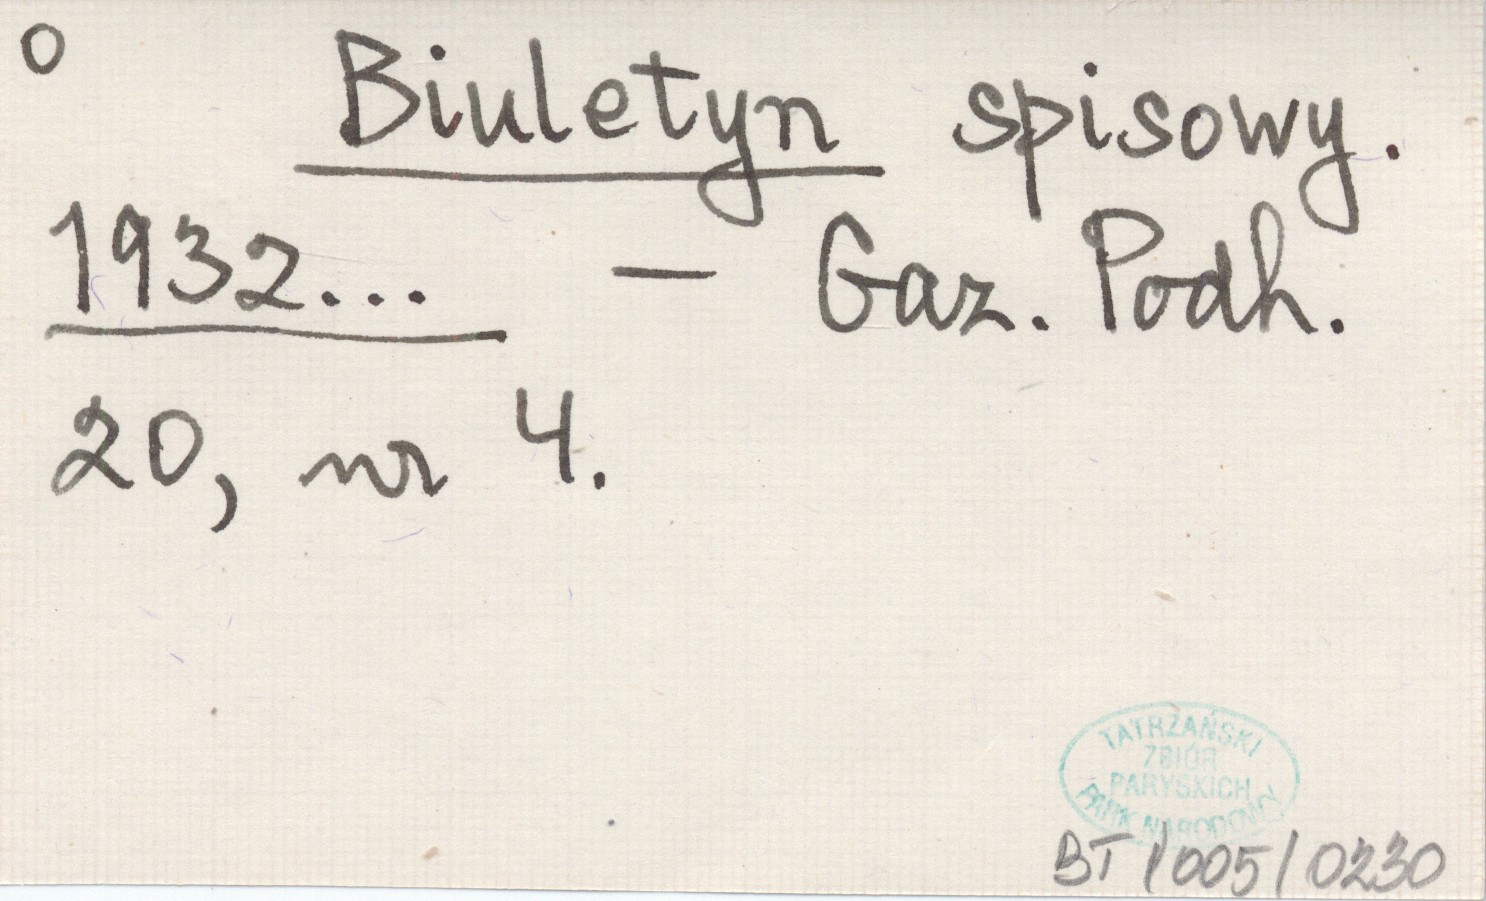 o Biuletyn spisowy.
1932... — Gaz. Podh.
20, nr 4.
TATRZAŃSKI
ZBIÓR
PARYSKICH
PARK NARODOWY
BT/005/0230